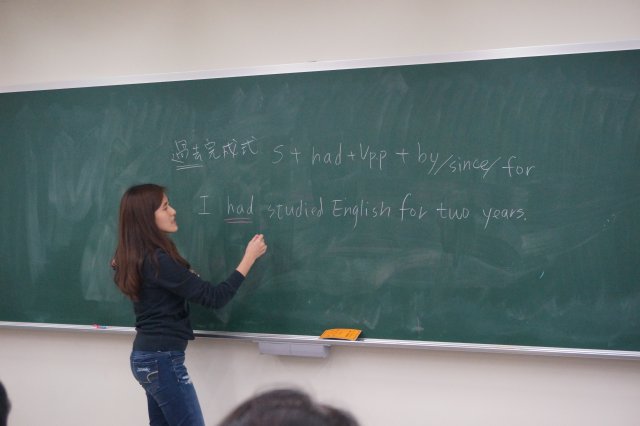 過去完成式 S + had + Vpp + by/since/for
I had studied English for two years.